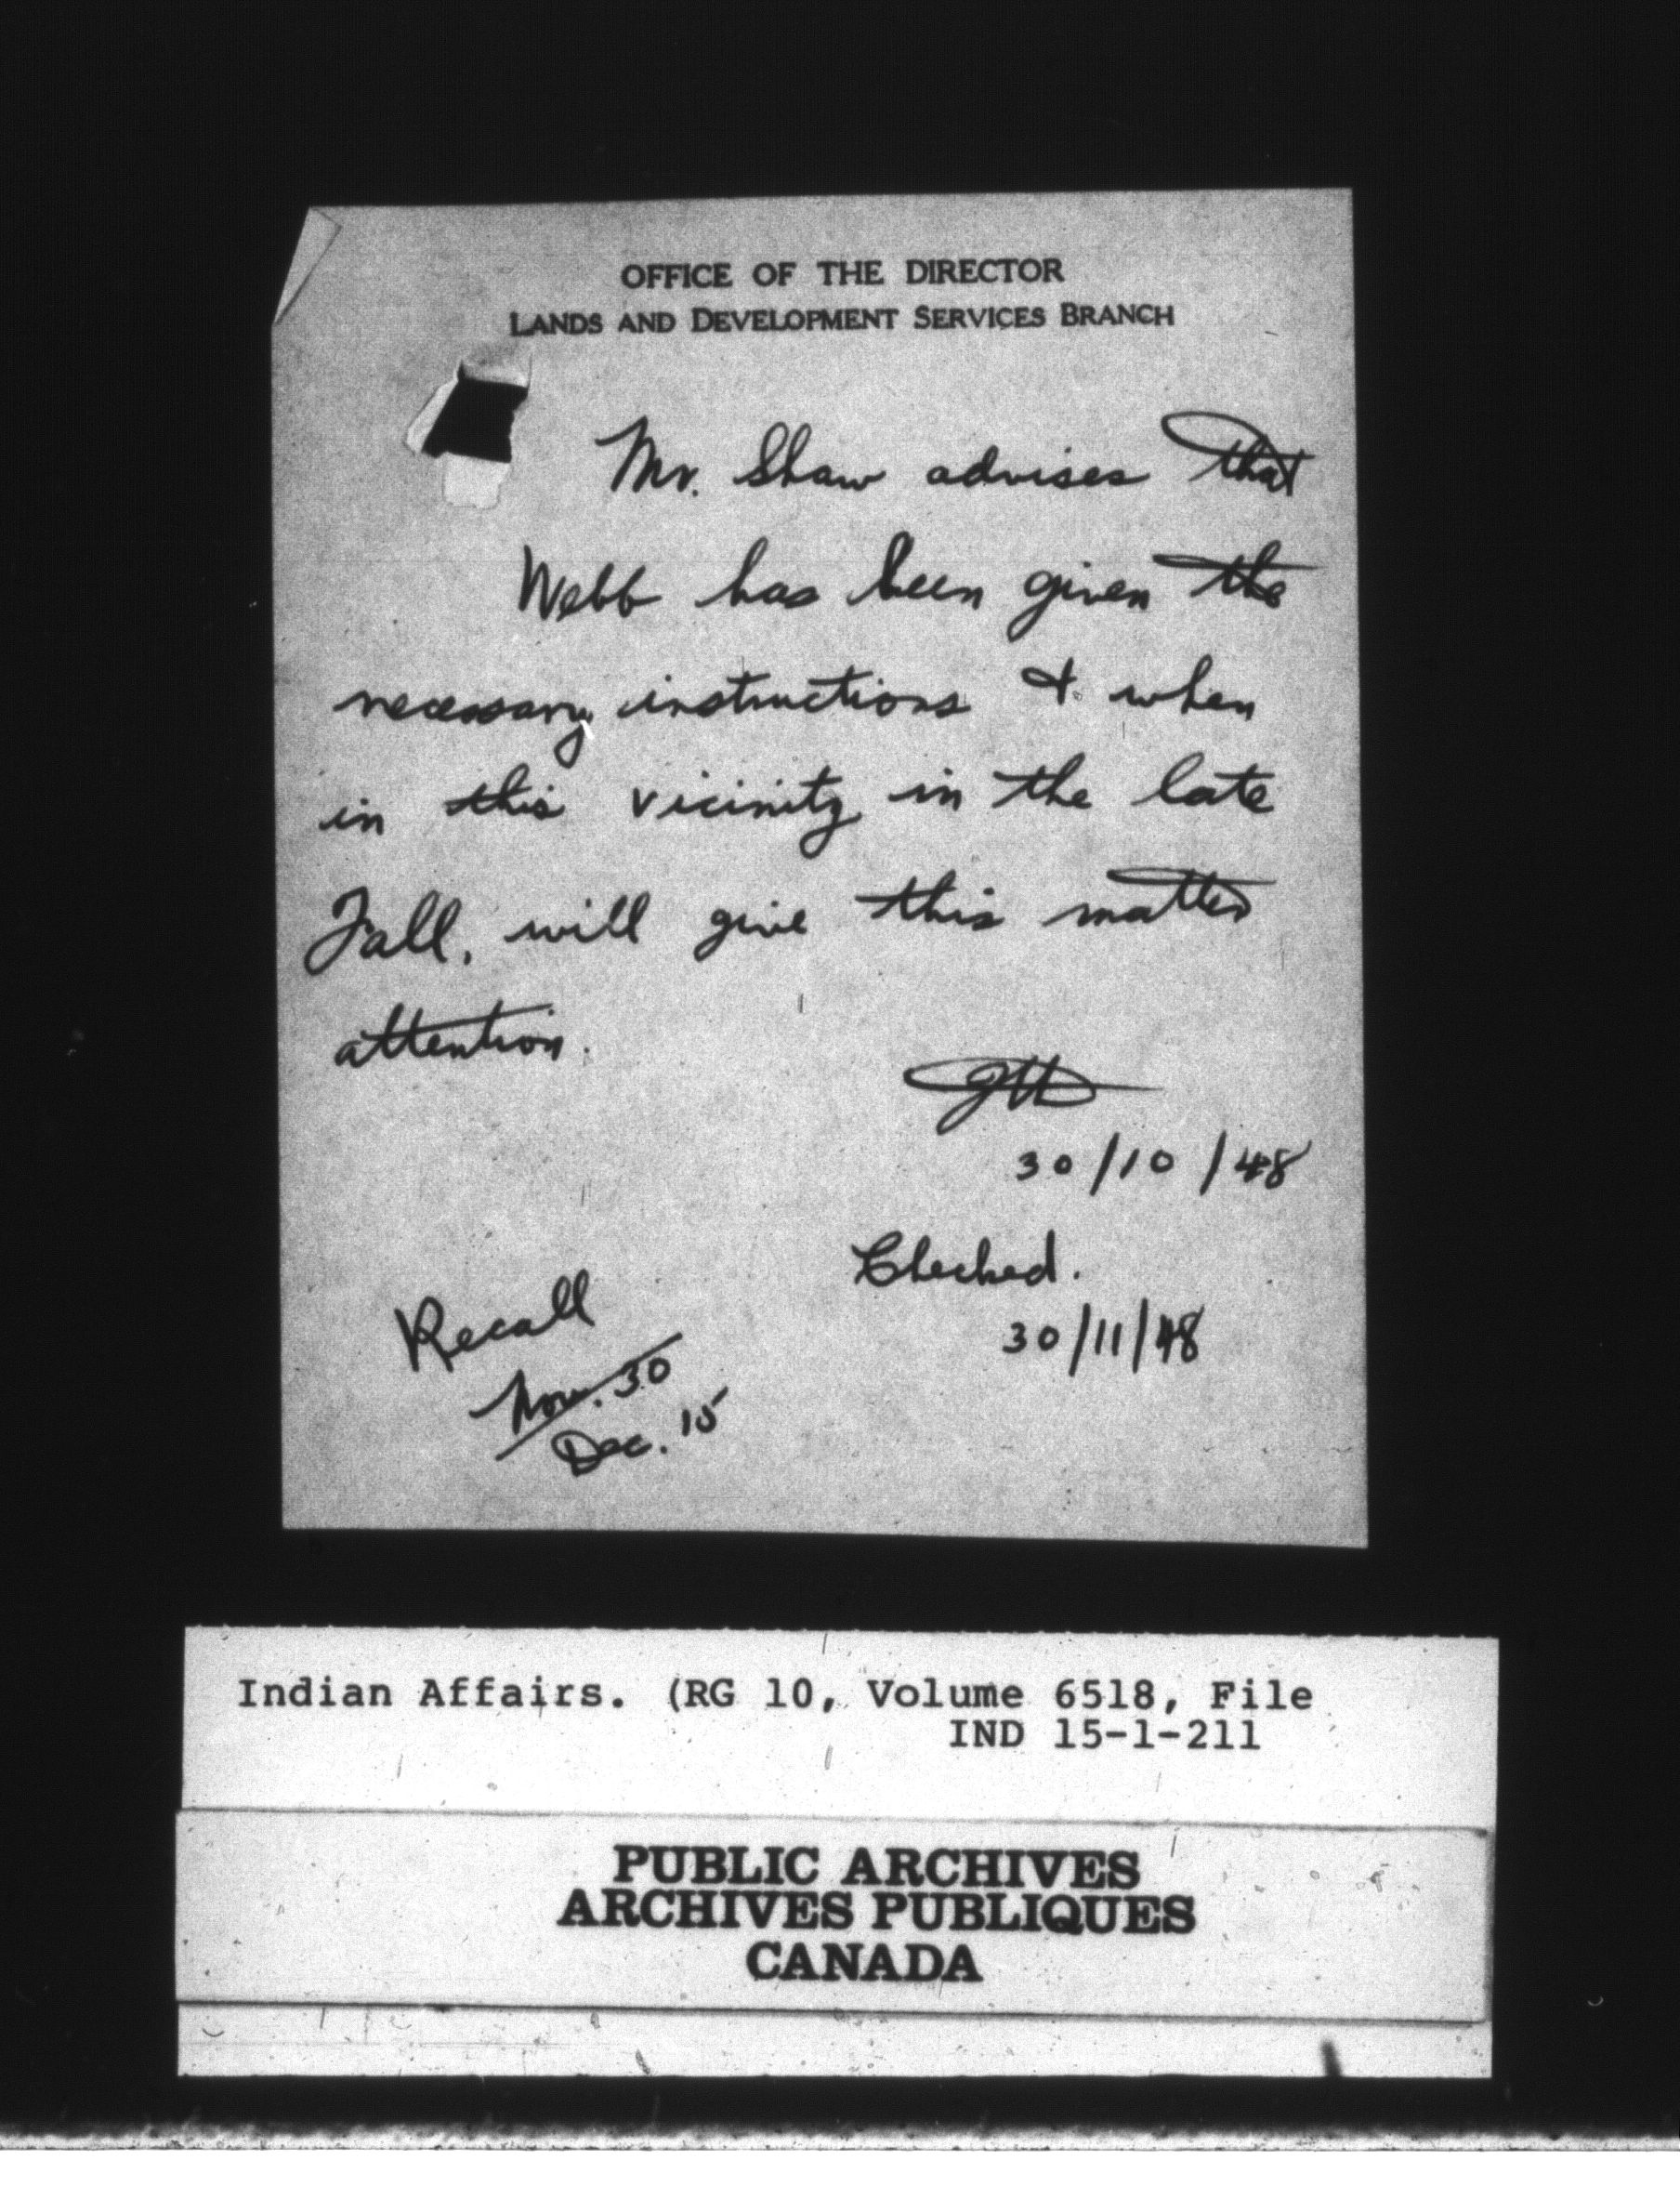 OFFICE OF THE DIRECTOR
LANDS AND DEVELOPMENT SERVICES BRANCH
Mr. Shaw advises that
Webb has been given the
necessary instructions & when
in this vicinity in the late
Fall, will give this matter
attention.
30/10/48
Checked.
30/11/48
Recall
Nov. 30
Dec. 15
Indian Affairs. (RG 10, Volume 6518, File
IND 15-1-211
PUBLIC ARCHIVES
ARCHIVES PUBLIQUES
CANADA